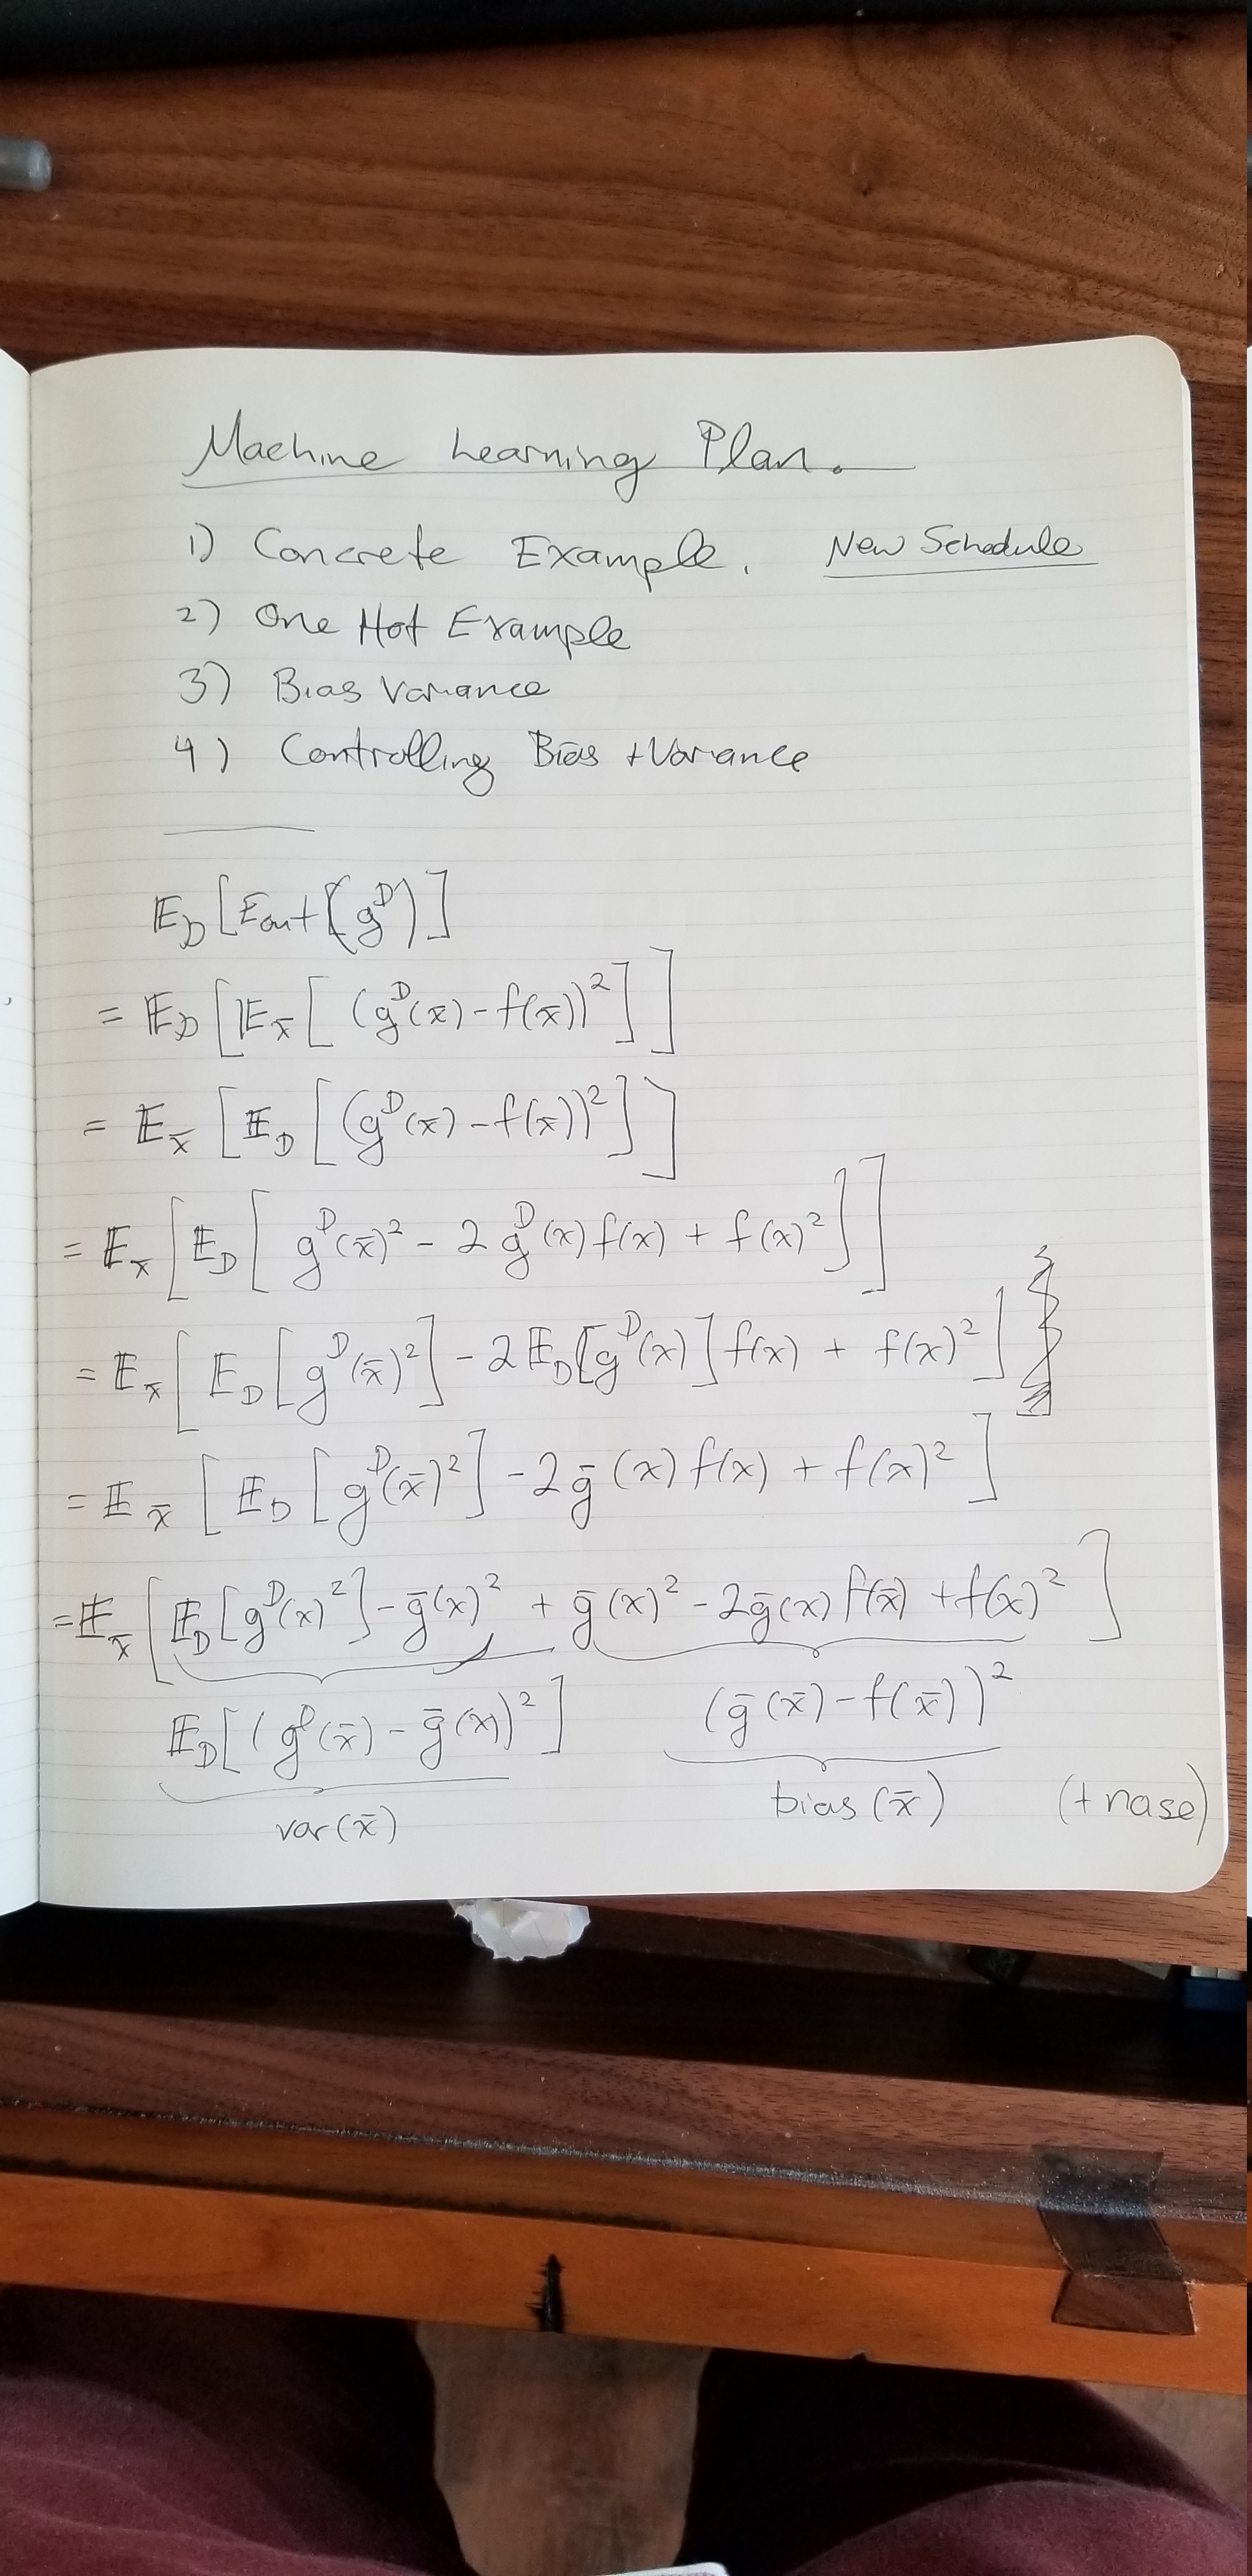 Machine Learning Plan.
1) Concrete Example. New Schedule
2) One Hot Example
3) Bias Variance
4) Controlling Bias + Variance
𝔼_D[E_out(g^D)]
= 𝔼_D[𝔼_x̄[(g^D(x̄) - f(x̄))²]]
= 𝔼_x̄[𝔼_D[(g^D(x̄) - f(x̄))²]]
= 𝔼_x̄[𝔼_D[g^D(x̄)² - 2g^D(x)f(x) + f(x)²]]
= 𝔼_x̄[𝔼_D[g^D(x̄)²] - 2𝔼_D[g^D(x)]f(x) + f(x)²]
= 𝔼_x̄[𝔼_D[g^D(x̄)²] - 2ḡ(x)f(x) + f(x)²]
= 𝔼_x̄[𝔼_D[g^D(x)²] - ḡ(x)² + ḡ(x)² - 2ḡ(x)f(x̄) + f(x)²]
𝔼_D[(g^D(x̄) - ḡ(x))²] (ḡ(x̄) - f(x̄))²
var(x̄) bias(x̄) (+ nose)